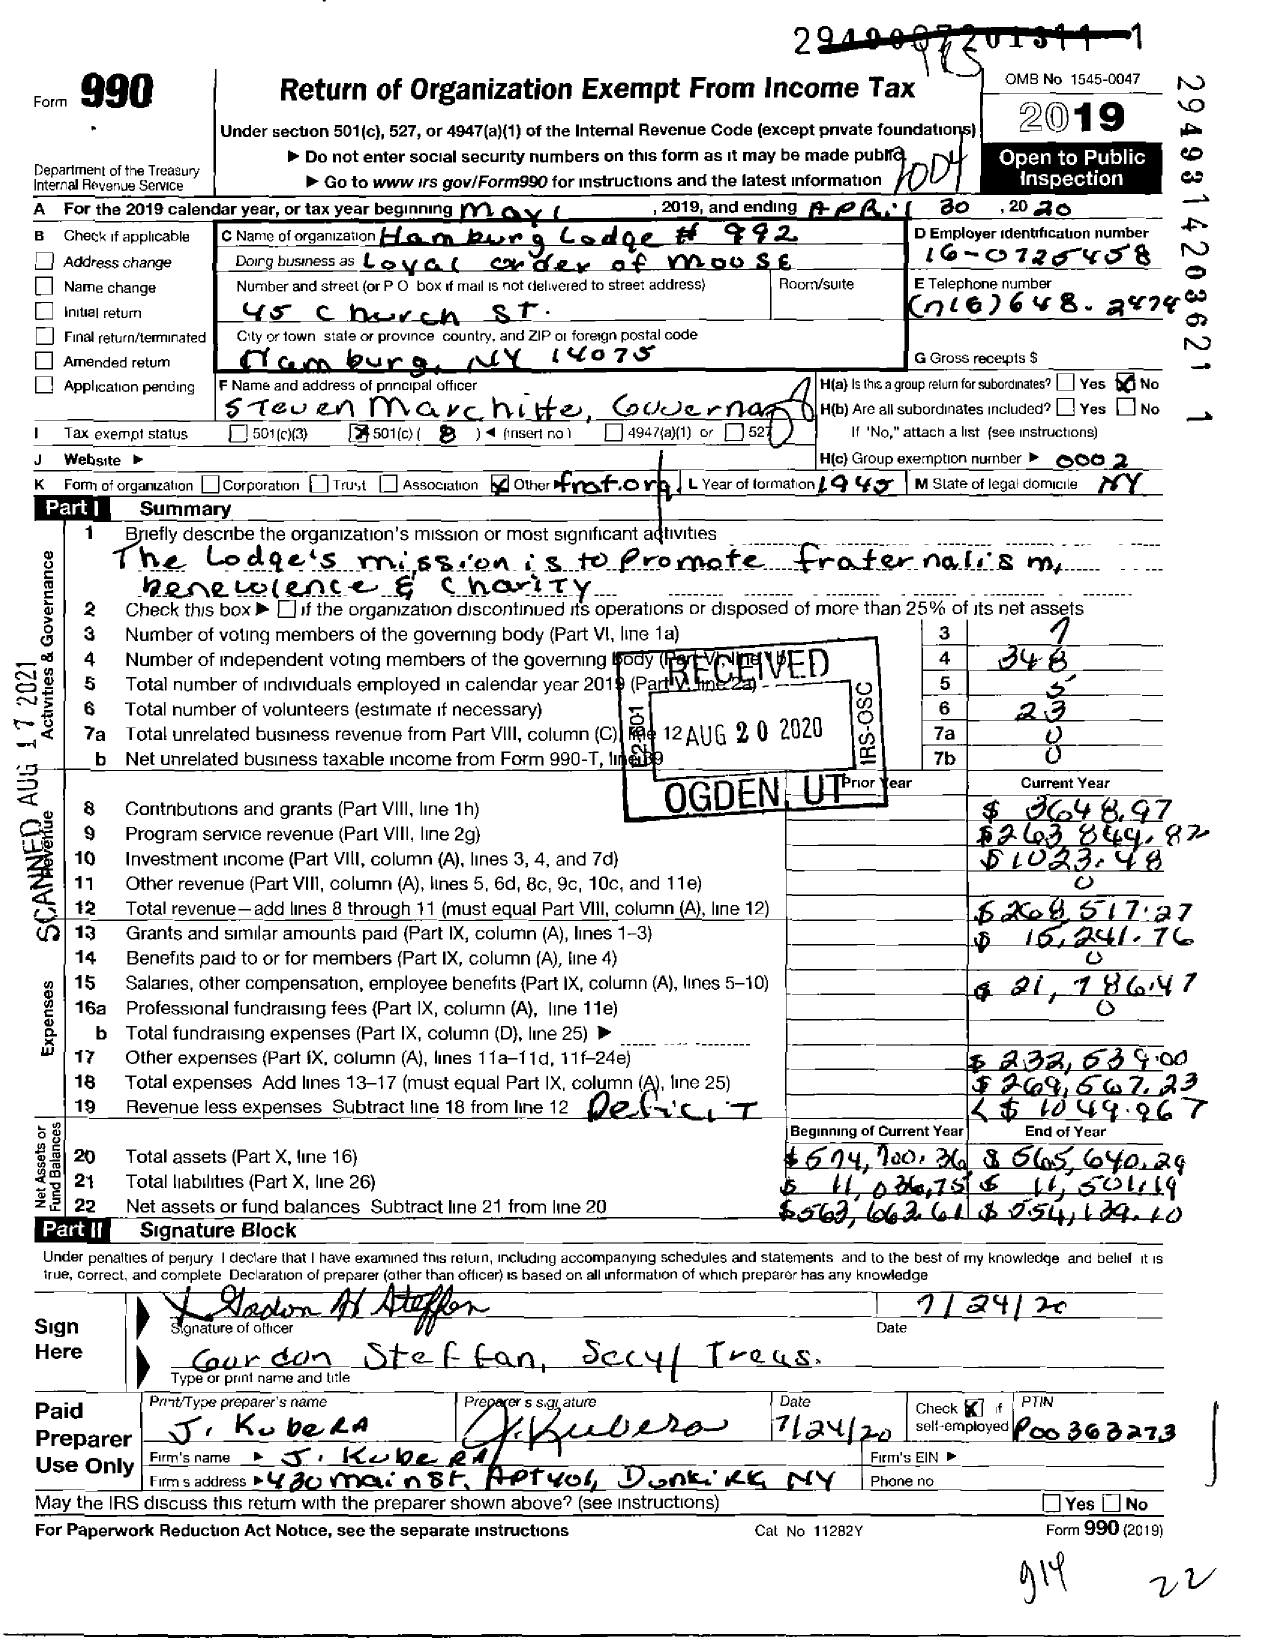 Form 990
Return of Organization Exempt From Income Tax
OMB No 1545-0047
2019
Under section 501(c), 527, or 4947(a)(1) of the Internal Revenue Code (except private foundations)
▶ Do not enter social security numbers on this form as it may be made public
▶ Go to www irs gov/Form990 for instructions and the latest information
Department of the Treasury
Internal Revenue Service
Open to Public
Inspection
29493142036211 1
A For the 2019 calendar year, or tax year beginning May 1, 2019, and ending April 30, 2020
B Check if applicable
Address change
Name change
Initial return
Final return/terminated
Amended return
Application pending
C Name of organization Hamburg Lodge # 992
Doing business as Loyal order of moose
Number and street (or P O box if mail is not delivered to street address) Room/suite
45 Church St.
City or town state or province country, and ZIP or foreign postal code
Hamburg, NY 14075
D Employer identification number
16-0725458
E Telephone number
(716) 648-2474
G Gross receipts $
F Name and address of principal officer
Steven Marchitte, Governor
H(a) Is this a group return for subordinates? Yes No
H(b) Are all subordinates included? Yes No
If "No," attach a list (see instructions)
I Tax exempt status 501(c)(3) 501(c) ( 8 ) ◀ (insert no ) 4947(a)(1) or 527
J Website ▶
H(c) Group exemption number ▶ 0002
K Form of organization Corporation Trust Association Other ▶ frat.org. L Year of formation 1945 M State of legal domicile NY
Part I Summary
Activities & Governance
1 Briefly describe the organization's mission or most significant activities
The Lodge's mission is to promote fraternalism,
benevolence & Charity
2 Check this box ▶ if the organization discontinued its operations or disposed of more than 25% of its net assets
3 Number of voting members of the governing body (Part VI, line 1a) 3 7
4 Number of independent voting members of the governing body (Part VI, line 1b) 4 348
5 Total number of individuals employed in calendar year 2019 (Part V, line 2a) 5 5
6 Total number of volunteers (estimate if necessary) 6 23
7a Total unrelated business revenue from Part VIII, column (C), line 12 7a 0
b Net unrelated business taxable income from Form 990-T, line 39 7b 0
RECEIVED
AUG 20 2020
IRS-OSC
OGDEN, UT
SCANNED AUG 17 2021
Revenue
Prior Year Current Year
8 Contributions and grants (Part VIII, line 1h) $ 3648.97
9 Program service revenue (Part VIII, line 2g) $263 844.82
10 Investment income (Part VIII, column (A), lines 3, 4, and 7d) $1023.48
11 Other revenue (Part VIII, column (A), lines 5, 6d, 8c, 9c, 10c, and 11e) 0
12 Total revenue—add lines 8 through 11 (must equal Part VIII, column (A), line 12) $268,517.27
Expenses
13 Grants and similar amounts paid (Part IX, column (A), lines 1–3) $ 15,241.76
14 Benefits paid to or for members (Part IX, column (A), line 4) 0
15 Salaries, other compensation, employee benefits (Part IX, column (A), lines 5–10) $ 21,786.47
16a Professional fundraising fees (Part IX, column (A), line 11e) 0
b Total fundraising expenses (Part IX, column (D), line 25) ▶
17 Other expenses (Part IX, column (A), lines 11a–11d, 11f–24e) $ 232,539.00
18 Total expenses Add lines 13–17 (must equal Part IX, column (A), line 25) $ 269,567.23
19 Revenue less expenses Subtract line 18 from line 12 Deficit < $ 1049.967
Net Assets or Fund Balances
Beginning of Current Year End of Year
20 Total assets (Part X, line 16) $574,700.36 $ 565,640.29
21 Total liabilities (Part X, line 26) $ 11,036.75 $ 11,501.19
22 Net assets or fund balances Subtract line 21 from line 20 $563,663.61 $ 554,139.10
Part II Signature Block
Under penalties of perjury I declare that I have examined this return, including accompanying schedules and statements and to the best of my knowledge and belief it is
true, correct, and complete Declaration of preparer (other than officer) is based on all information of which preparer has any knowledge
Sign Here
7/24/20
Signature of officer Date
Gordon Steffan, Secy/Treas.
Type or print name and title
Paid Preparer Use Only
Print/Type preparer's name Preparer s signature Date Check if self-employed PTIN
J. Kubera J. Kubera 7/24/20 P00363273
Firm's name ▶ J. Kubera Firm's EIN ▶
Firm s address ▶ 430 main St. Apt 401, Dunkirk, NY Phone no
May the IRS discuss this return with the preparer shown above? (see instructions) Yes No
For Paperwork Reduction Act Notice, see the separate instructions Cat No 11282Y Form 990 (2019)
914 22